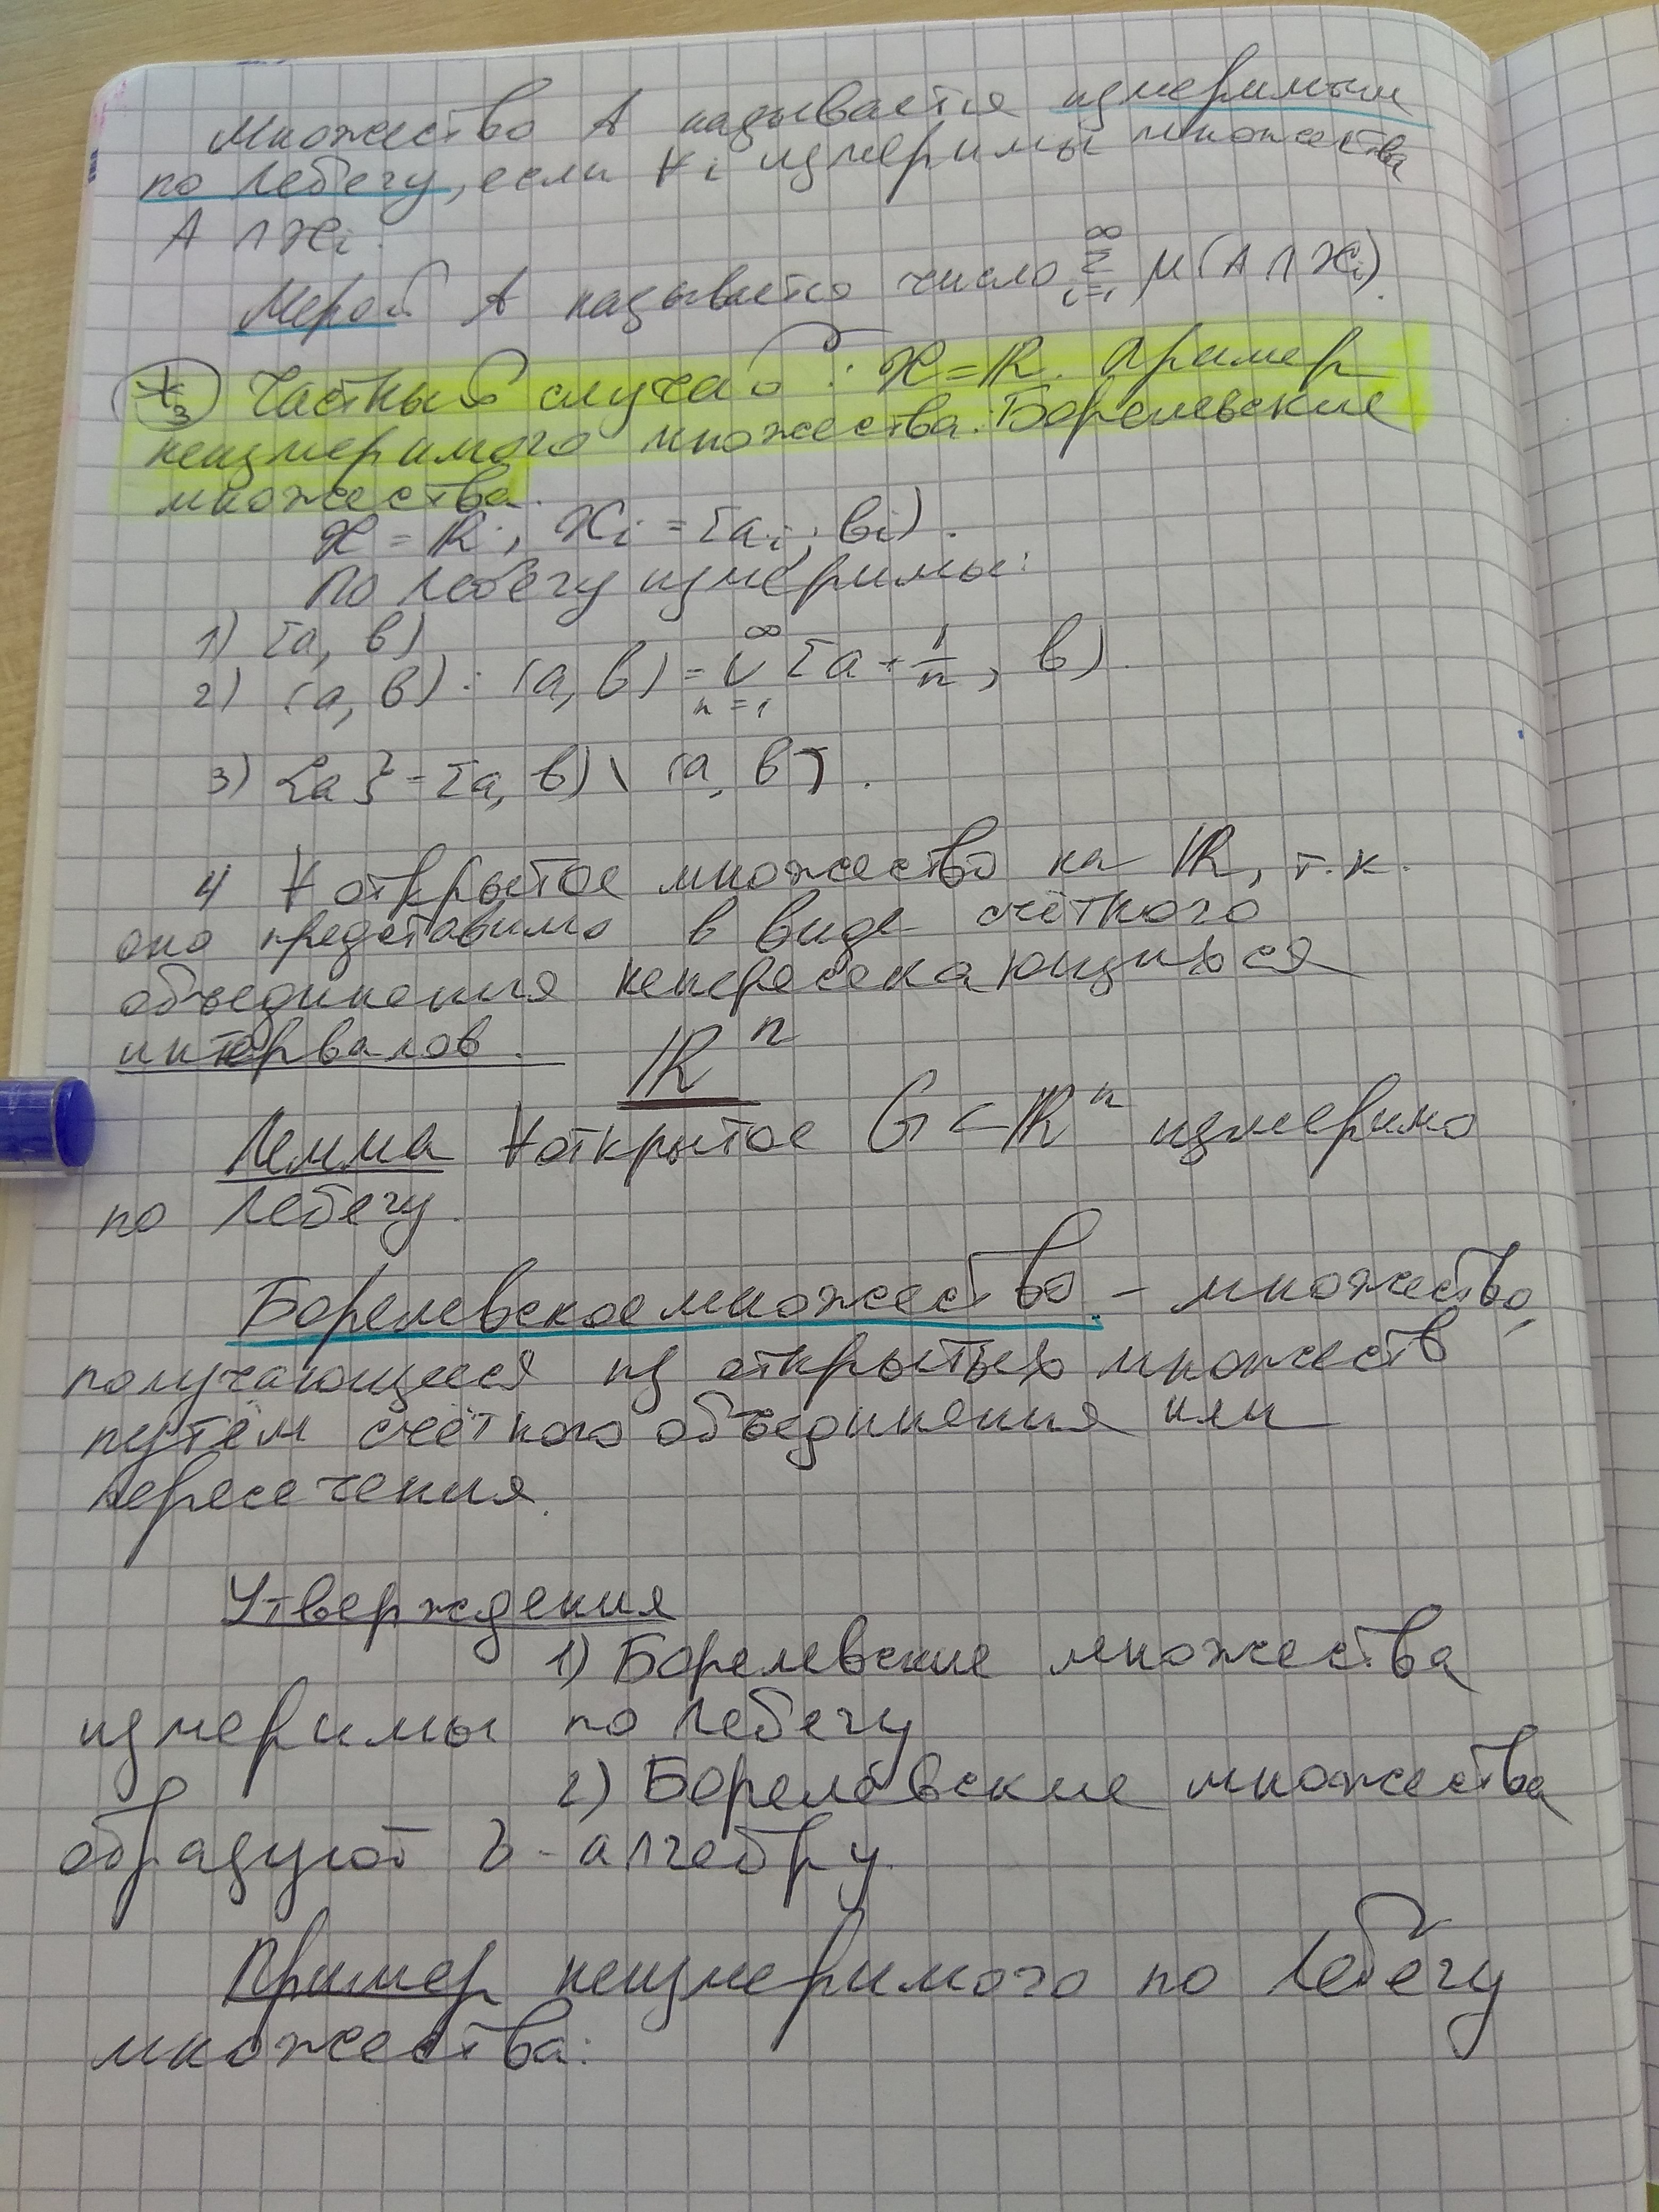 Множество A называется измеримым
по Лебегу, если ∀i измеримы множества
A ∩ Xi.
Мерой A называется число ∑_{i=1}^{∞} μ(A ∩ Xi).
*3 Частный случай: X = ℝ. Пример
неизмеримого множества. Борелевские
множества.
X = ℝ, Xi = [ai, bi).
По Лебегу измеримы:
1) [a, b)
2) (a, b) : (a, b) = ∪_{n=1}^{∞} [a + 1/n, b).
3) {a} = [a, b) \ (a, b).
4) ∀ открытое множество на ℝ, т.к.
оно представимо в виде счётного
объединения непересекающихся
интервалов.
ℝⁿ
Лемма ∀ открытое G ⊂ ℝⁿ измеримо
по Лебегу.
Борелевское множество – множество,
получающееся из открытых множеств
путём счётного объединения или
пересечения.
Утверждения
1) Борелевские множества
измеримы по Лебегу
2) Борелевские множества
образуют σ-алгебру.
Пример неизмеримого по Лебегу
множества: